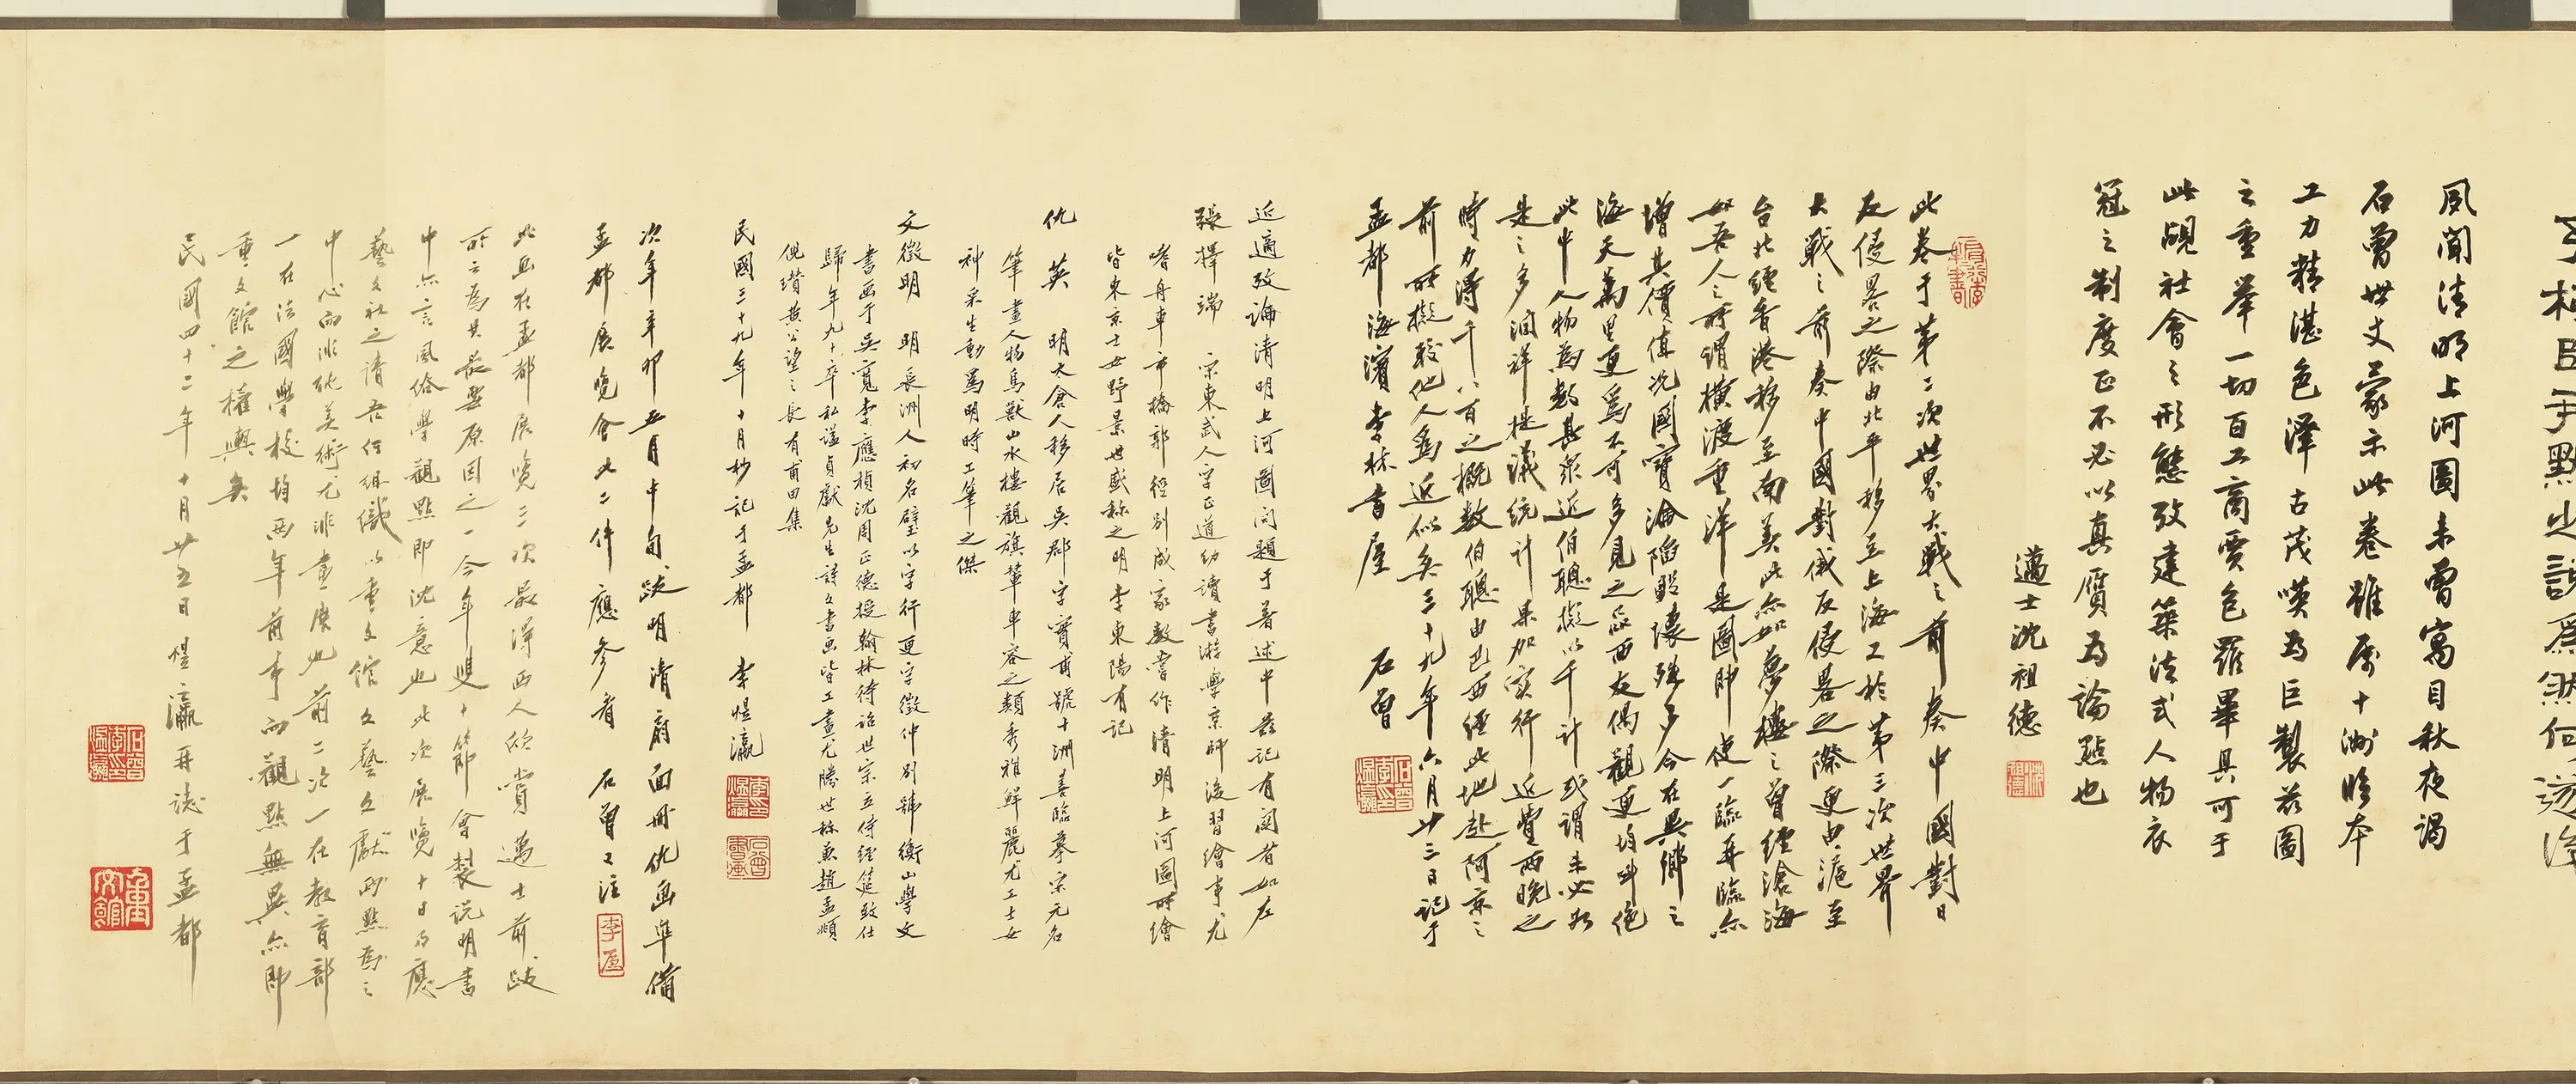 夙聞清明上河圖未曾寓目秋夜謁
石曾世丈蒙示此卷雖屬十洲臨本
工力精湛色澤古茂嘆為巨製茲圖
之重舉一切百工商賈包羅畢具可于
此覘社會之形態攷建築法式人物衣
冠之制度正不必以真贋為論點也
邁士沈祖德
此卷于第二次世界大戰之前奏中國對日
反侵畧之際由北平移至上海又於第三次世界
大戰之前奏中國對俄反侵畧之際更由滬至
台北經香港移至南美此亦如夢樓之曾經滄海
如吾人之所謂橫渡重洋是圖即使一臨再臨亦
增其價值况國寶淪陷毀壞殊多今在異鄉之
海天萬里更為不可多見之品西友偶觀更均叫絕
此中人物為數甚眾近伯聰擬以千計或謂未必如
是之多润祥提議統計果加實行近費兩晚之
時力得千八百之概數伯聰由巴西經此地赴阿京之
前所擬較他人為近似矣三十九年六月廿三日記于
孟都海濱李林書屋 石曾
近適攷論清明上河圖問題于著述中茲記有関者如左
張擇端 宋東武人字正道幼讀書游學京師後習繪事尤
嗜舟車市橋郭徑別成家數嘗作清明上河圖所繪
皆東京士女野景世盛称之明李東陽有記
仇英 明太倉人移居吳郡字實甫號十洲善臨摹宋元名
筆畫人物鳥獸山水樓觀旗輦車容之類秀雅鮮麗尤工士女
神采生動為明時工筆之傑
文徵明 明長洲人初名壁以字行更字徵仲別號衡山學文
書画于吳寬李應禎沈周正德授翰林待詔世宗立侍經筵致仕
歸年九十卒私謚貞獻先生詩文書画皆工畫尤勝世称兼趙孟頫
倪瓚黄公望之長有甫田集
民國三十九年十月杪記于孟都 李煜瀛
次年辛卯五月中旬跋明清扇面冊仇画準備
孟都展覽會此二件應參看 石曾又注
此画在孟都展覽三次最得西人欣賞邁士前跋
所云為其最要原因之一今年雙十節會製說明書
中亦言風俗學觀點即沈意也此次展覽十日乃應
藝文社之請吾侪組織以重文館文藝文獻两點為之
中心而非純美術尤非畫展也前二次一在教育部
一在法國學校均两年前事而觀點無異亦即
重文館之權輿矣
民國四十二年十月廿五日煜瀛再誌于孟都